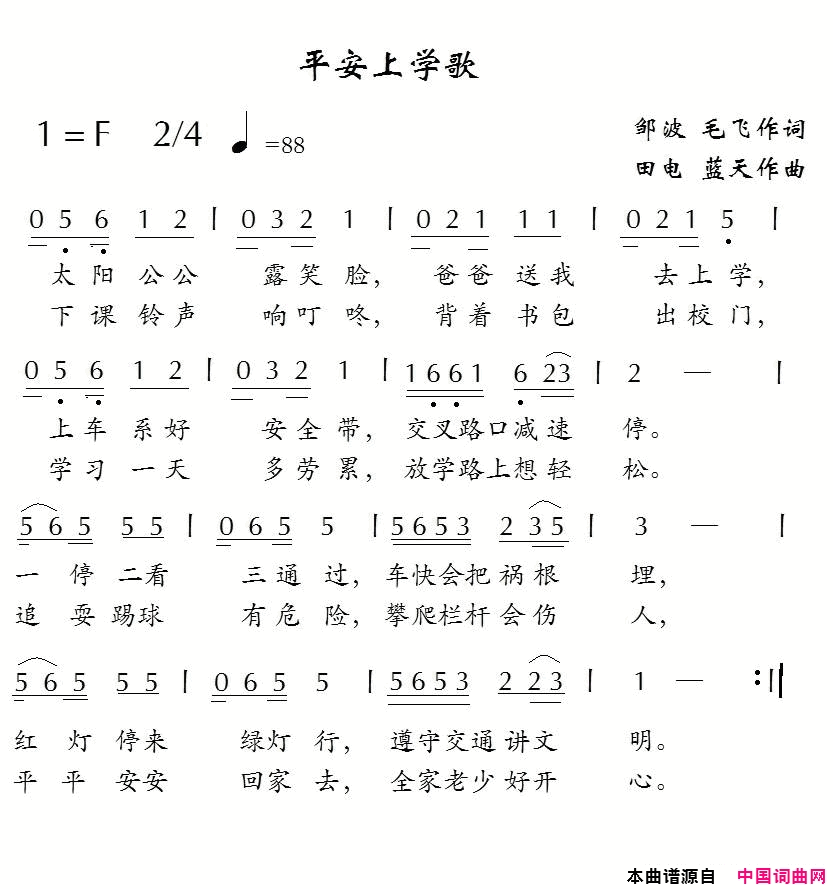 平安上学歌
1=F 2/4 =88
邹波 毛飞作词
田电 蓝天作曲
0 5 6 1 2 | 0 3 2 1 | 0 2 1 1 1 | 0 2 1 5 |
太阳公公 露笑脸， 爸爸送我 去上学，
下课铃声 响叮咚， 背着书包 出校门，
0 5 6 1 2 | 0 3 2 1 | 1 6 6 1 6 2 3 | 2 — |
上车系好 安全带， 交叉路口减速 停。
学习一天 多劳累， 放学路上想轻 松。
5 6 5 5 5 | 0 6 5 5 | 5 6 5 3 2 3 5 | 3 — |
一停二看 三通过， 车快会把祸根 埋，
追耍踢球 有危险， 攀爬栏杆会伤 人，
5 6 5 5 5 | 0 6 5 5 | 5 6 5 3 2 2 3 | 1 — :||
红灯停来 绿灯行， 遵守交通讲文 明。
平平安安 回家去， 全家老少好开 心。
本曲谱源自 中国词曲网